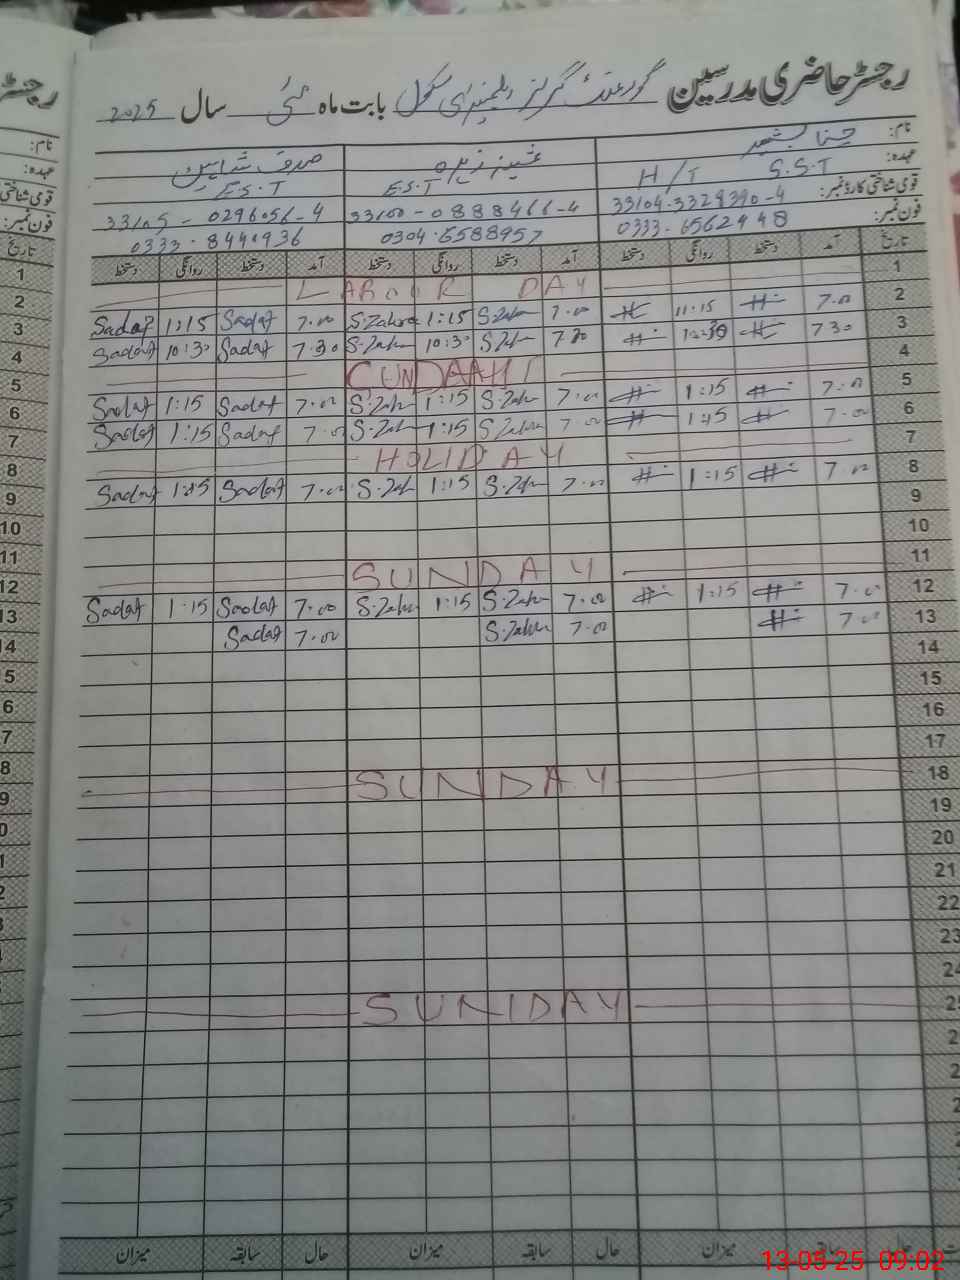 رجسٹر حاضری مدرسین گورنمنٹ گرلز ایلیمنٹری سکول بابت ماہ مئی سال 2025
نام:
عہدہ: S.S.T H/T E.S.T E.S.T
قومی شناختی کارڈ نمبر: 33104-3328390-4 33100-0888466-4 33105-0296056-4
فون نمبر: 0333-6562448 0304-6588957 0333-8440936
تاریخ آمد دستخط روانگی دستخط آمد دستخط روانگی دستخط آمد دستخط روانگی دستخط
1 LABOUR DAY
2 Sadaf 1:15 Sadaf 7.00 S.Zahra 1:15 S.Zahr 7.00 11:15 7.00
3 Sadaf 10:30 Sadaf 7.30 S.Zahr 10:30 S.Zahr 7.30 7 30
4 SUNDAY
5 Sadaf 1:15 Sadaf 7.00 S.Zahr 1:15 S.Zahr 7.00 1:15 7.00
6 Sadaf 1:15 Sadaf 7.00 S.Zahr 1:15 S.Zahra 7.00 1:15 7.00
7 HOLIDAY
8 Sadaf 1:15 Sadaf 7.00 S.Zahr 1:15 S.Zahr 7.00 1:15 7.00
9
10
11 SUNDAY
12 Sadaf 1:15 Sadaf 7.00 S.Zahr 1:15 S.Zahr 7.00 1:15 7.00
13 Sadaf 7.00 S.Zahr 7.00 7.00
14
15
16
17
18 SUNDAY
19
20
21
22
23
24
25 SUNDAY
میزان سابقہ حال میزان سابقہ حال میزان سابقہ حال
13-05-25 09:02